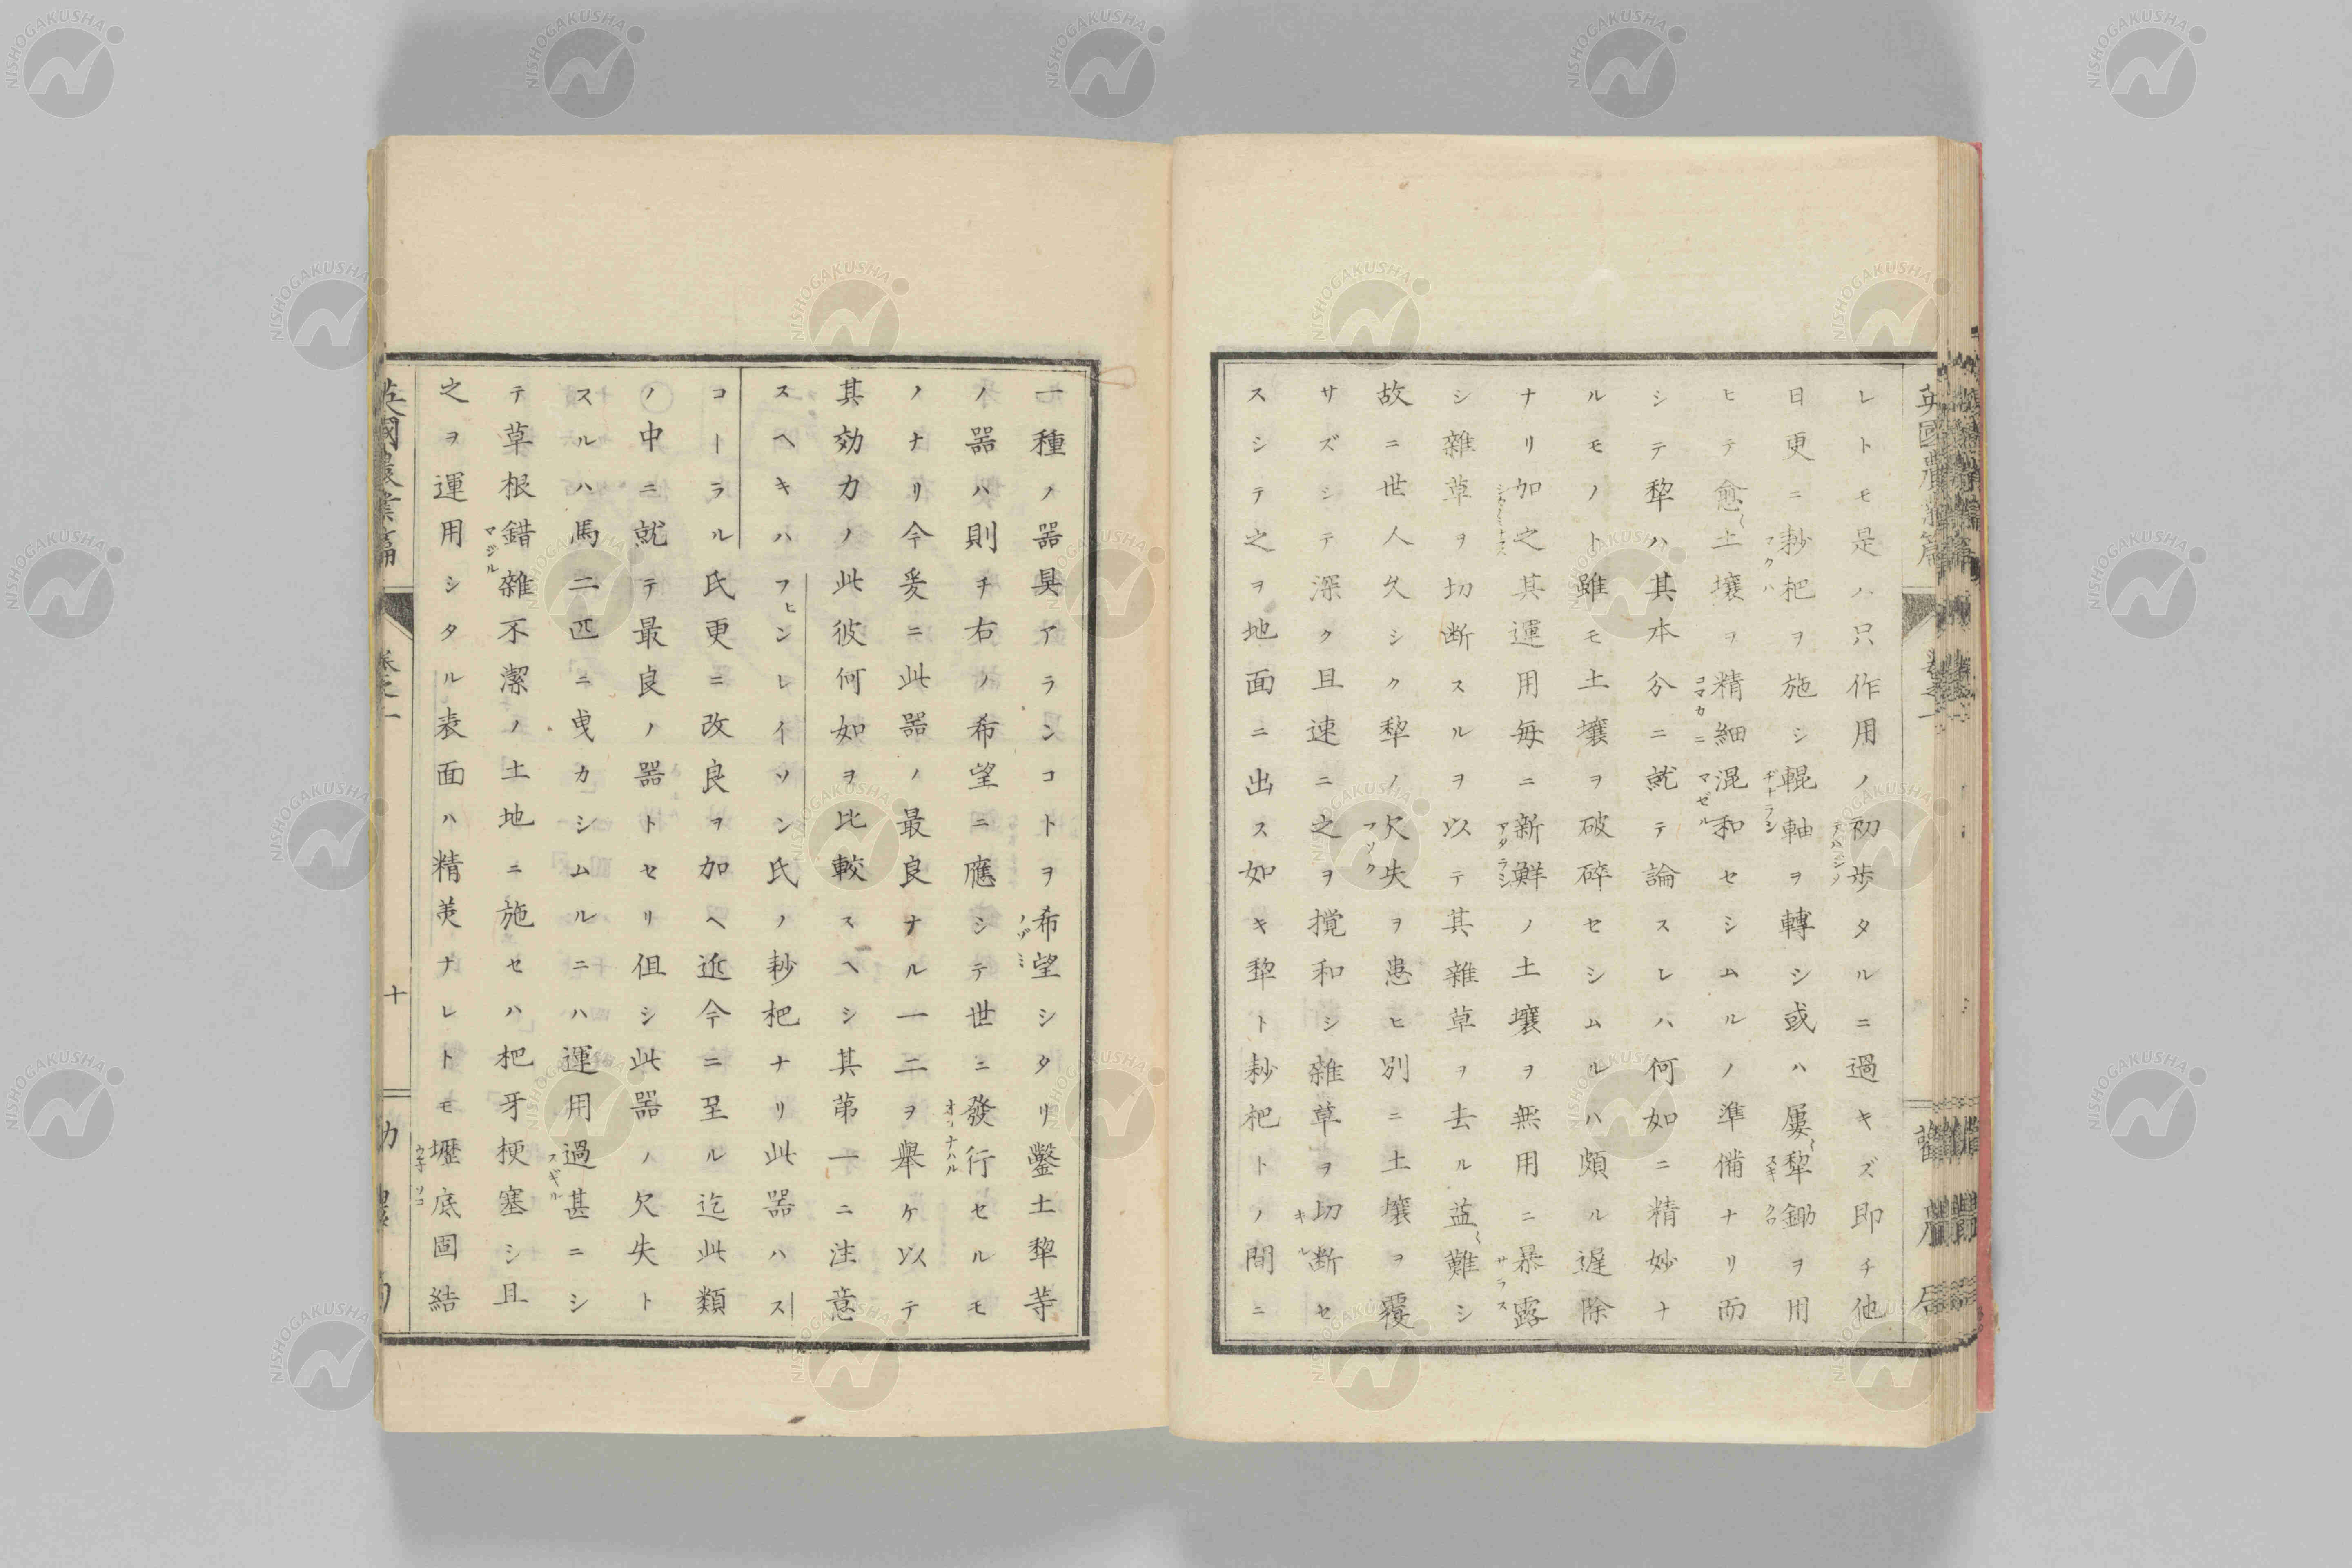 レトモ是ハ只作用ノ初歩タルニ過キズ即チ他
日更ニ耖杷ヲ施シ輥軸ヲ轉シ或ハ屡〻犂鋤ヲ用
ヒテ愈〻土壤ヲ精細混和セシムルノ準備ナリ而
シテ犂ハ其本分ニ就テ論スレハ何如ニ精妙ナ
ルモノト雖モ土壤ヲ破碎セシムルハ頗ル遅除
ナリ加之其運用毎ニ新鮮ノ土壤ヲ無用ニ暴露
シ雜草ヲ切断スルヲ以テ其雜草ヲ去ル益〻難シ
故ニ世人久シク犂ノ欠失ヲ患ヒ別ニ土壤ヲ覆
サズシテ深ク且速ニ之ヲ撹和シ雜草ヲ切断セ
スシテ之ヲ地面ニ出ス如キ犂ト耖杷トノ間ニ
一種ノ器具アランコトヲ希望シタリ鑿土犂等
ノ器ハ則チ右ノ希望ニ應シテ世ニ發行セルモ
ノナリ今爰ニ此器ノ最良ナル一二ヲ舉ケ以テ
其効力ノ此彼何如ヲ比較スヘシ其苐一ニ注意
スヘキハフヒンレイソン氏ノ耖杷ナリ此器ハス
コーラル氏更ニ改良ヲ加ヘ近今ニ至ル迄此類
ノ中ニ就テ最良ノ器トセリ但シ此器ノ欠失ト
スルハ馬二匹ニ曳カシムルニハ運用過甚ニシ
テ草根錯雜不潔ノ土地ニ施セハ杷牙梗塞シ且
之ヲ運用シタル表面ハ精美ナレトモ壢底固結
英國農業篇
卷之一
十
NISHOGAKUSHA